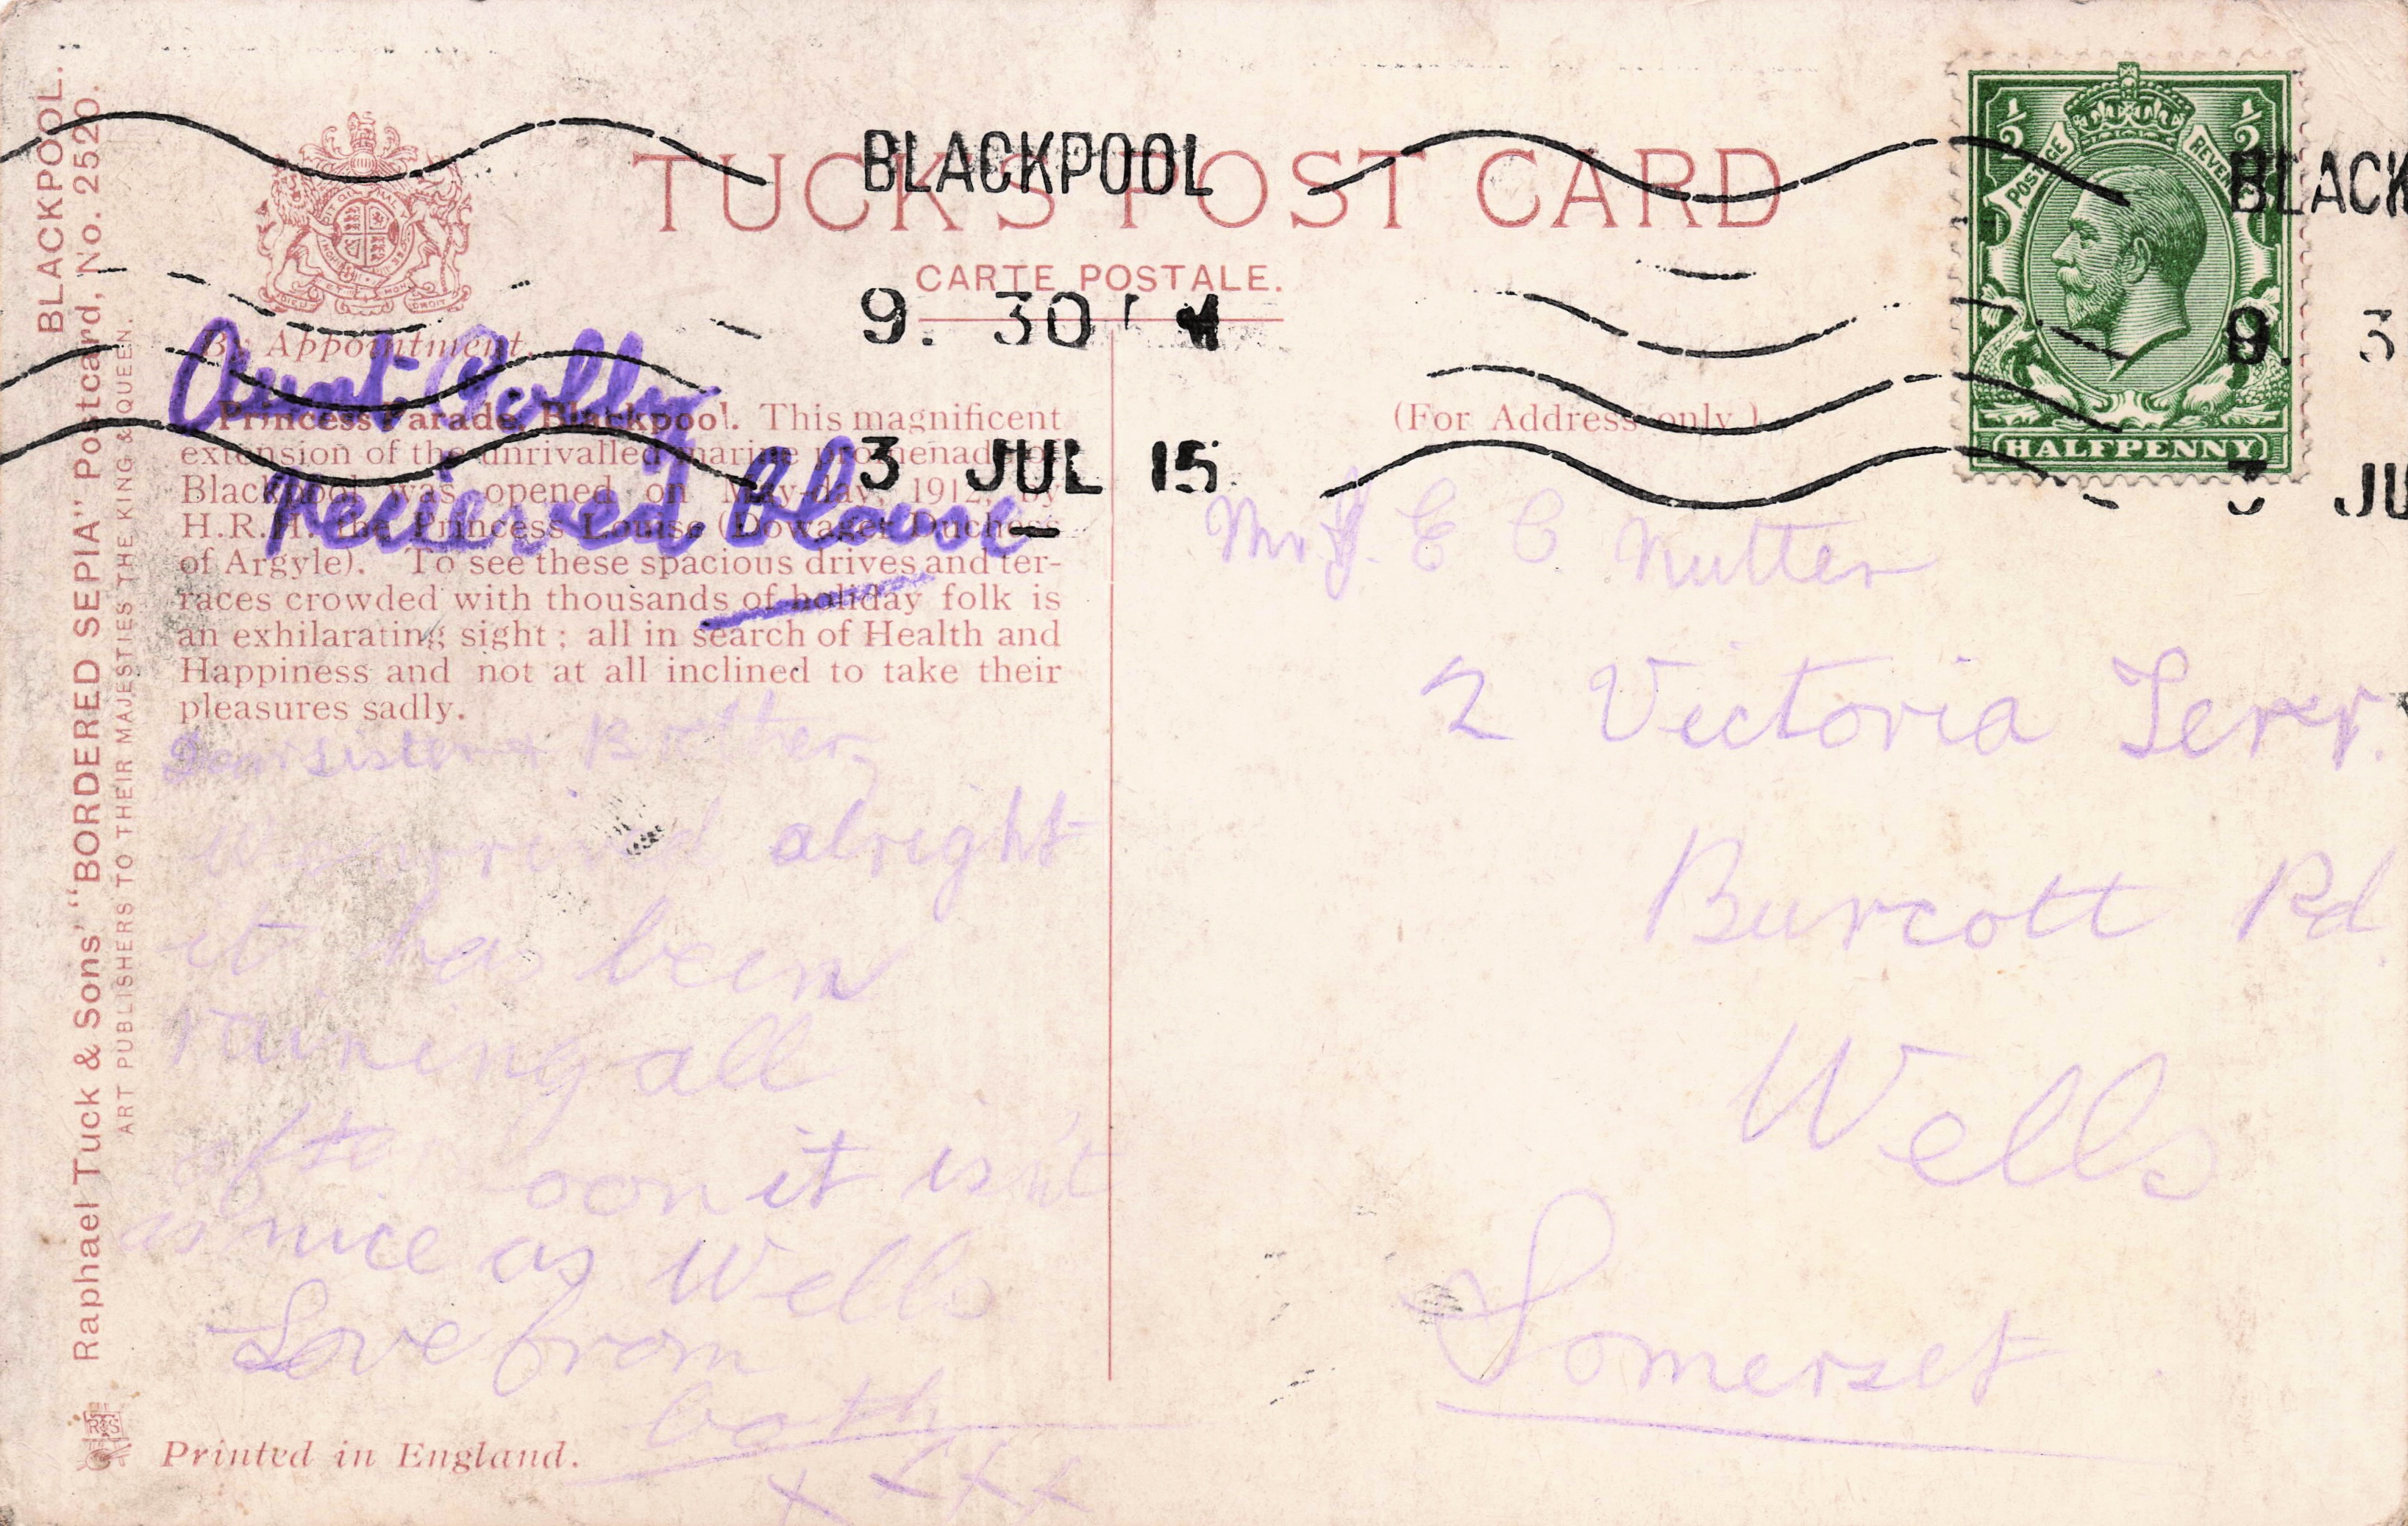 BLACKPOOL.
Raphael Tuck & Sons' "BORDERED SEPIA" Postcard, No. 2520.
ART PUBLISHERS TO THEIR MAJESTIES THE KING & QUEEN.
TUCK'S POST CARD
CARTE POSTALE.
BLACKPOOL
9. 30
3 JUL 15
BLACK
9. 3
3 JU
POSTAGE REVENUE
½ ½
HALFPENNY
DIEU ET MON DROIT
By Appointment.
Aunt
recieved
Princess Parade, Blackpool. This magnificent
extension of the unrivalled marine promenade of
Blackpool was opened on May-day, 1912, by
H.R.H. the Princess Louise (Dowager Duchess
of Argyle). To see these spacious drives and ter-
races crowded with thousands of holiday folk is
an exhilarating sight; all in search of Health and
Happiness and not at all inclined to take their
pleasures sadly.
Dear sister & Brother,
We arrived alright
it has been
raining all
afternoon it isn't
as nice as Wells
Love from
both
x x x x
Printed in England.
(For Address only.)
Mr J. E C Nutter
2 Victoria Terr.
Burcott Rd
Wells
Somerset